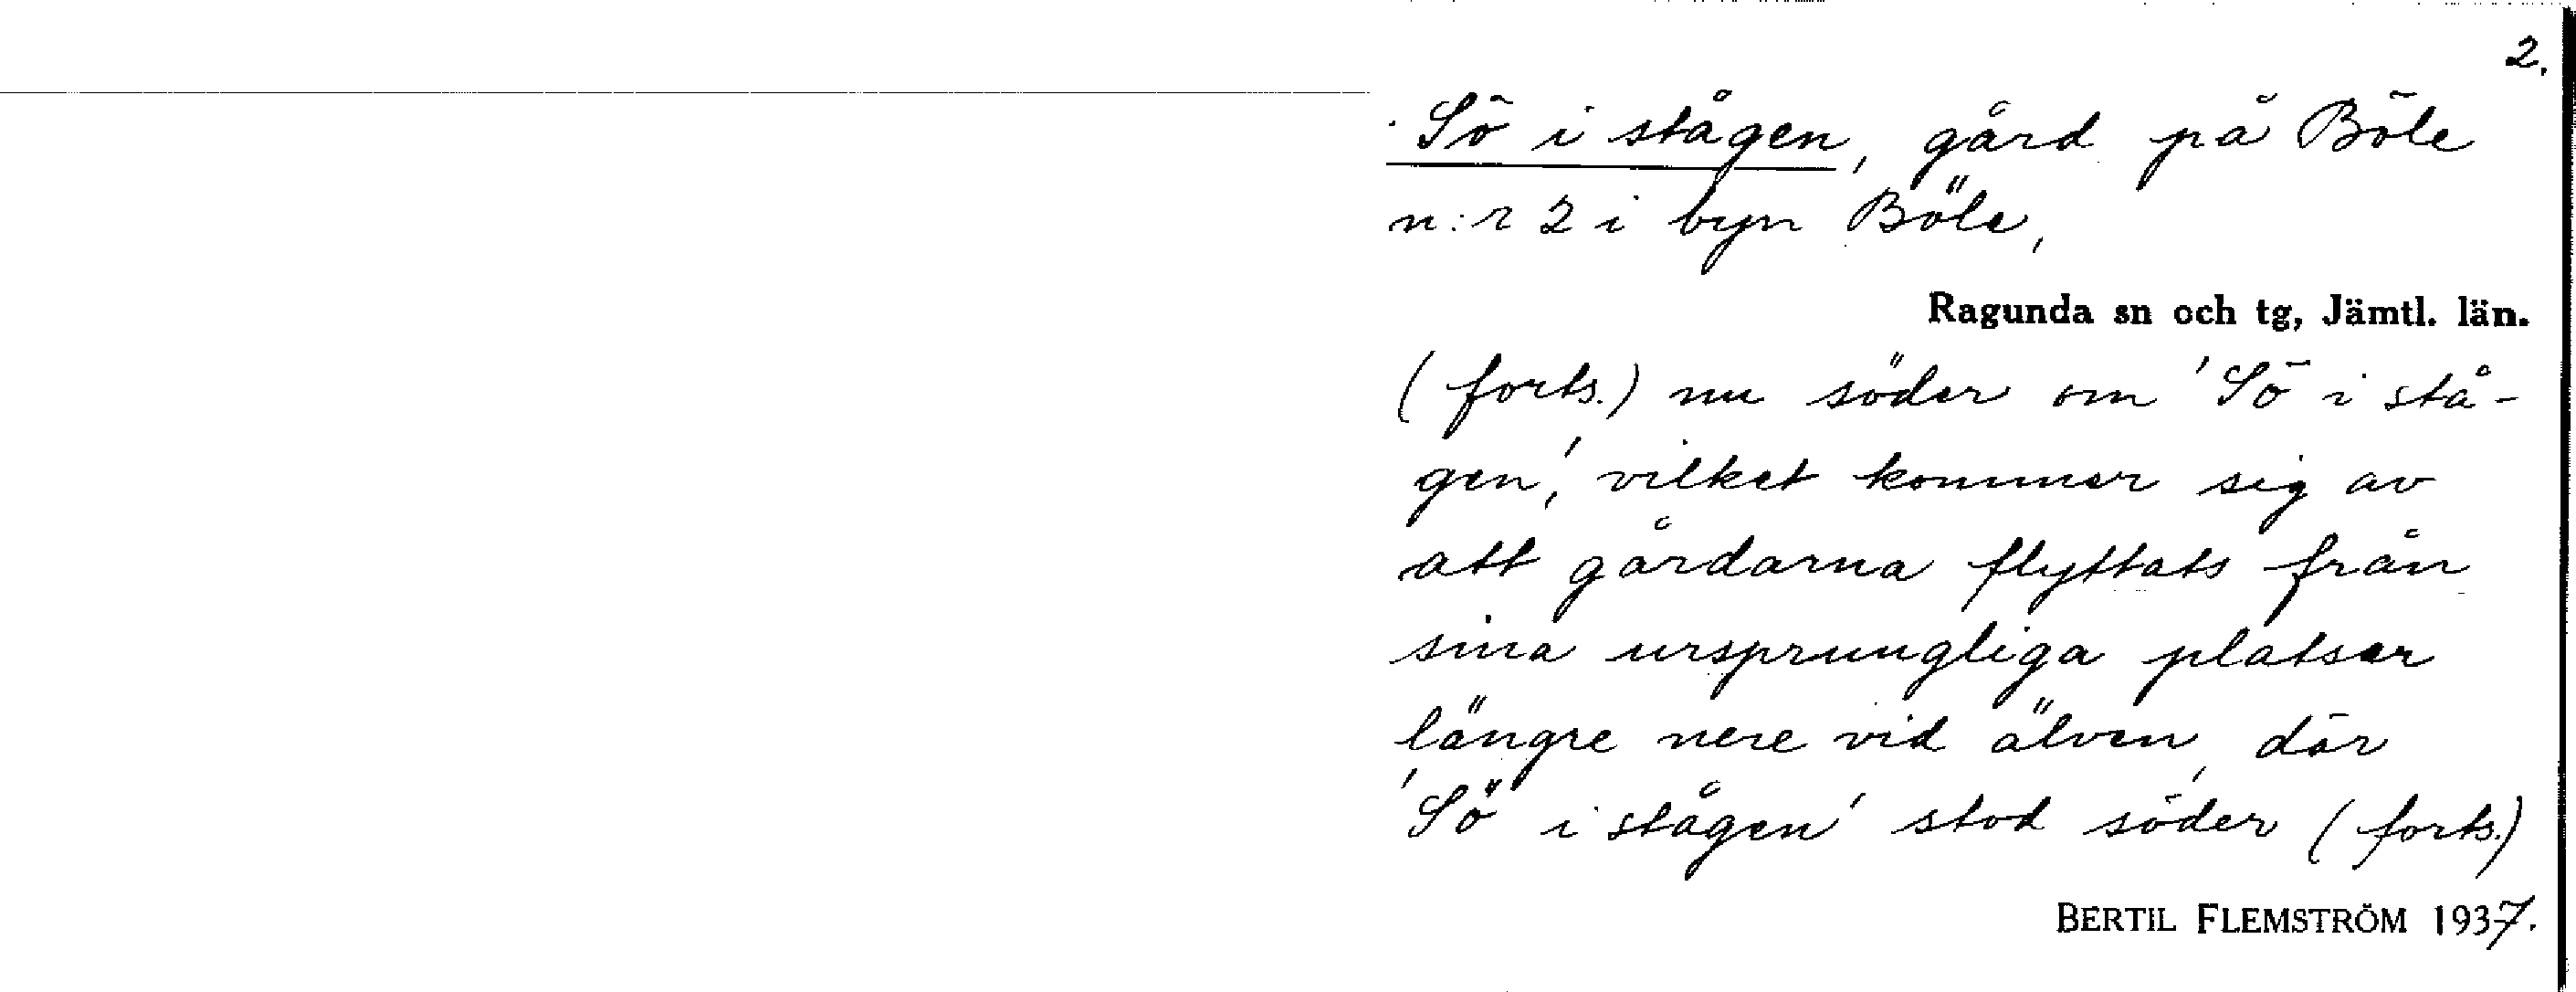 2.
Sö i stågen, gård på Böle
n:r 2 i byn Böle,
Ragunda sn och tg, Jämtl. län.
(forts.) nu söder om 'Sö i stå-
gen', vilket kommer sig av
att gårdarna flyttats från
sina ursprungliga platser
längre nere vid älven, där
'Sö i stågen' stod söder (forts.)
BERTIL FLEMSTRÖM 1937.